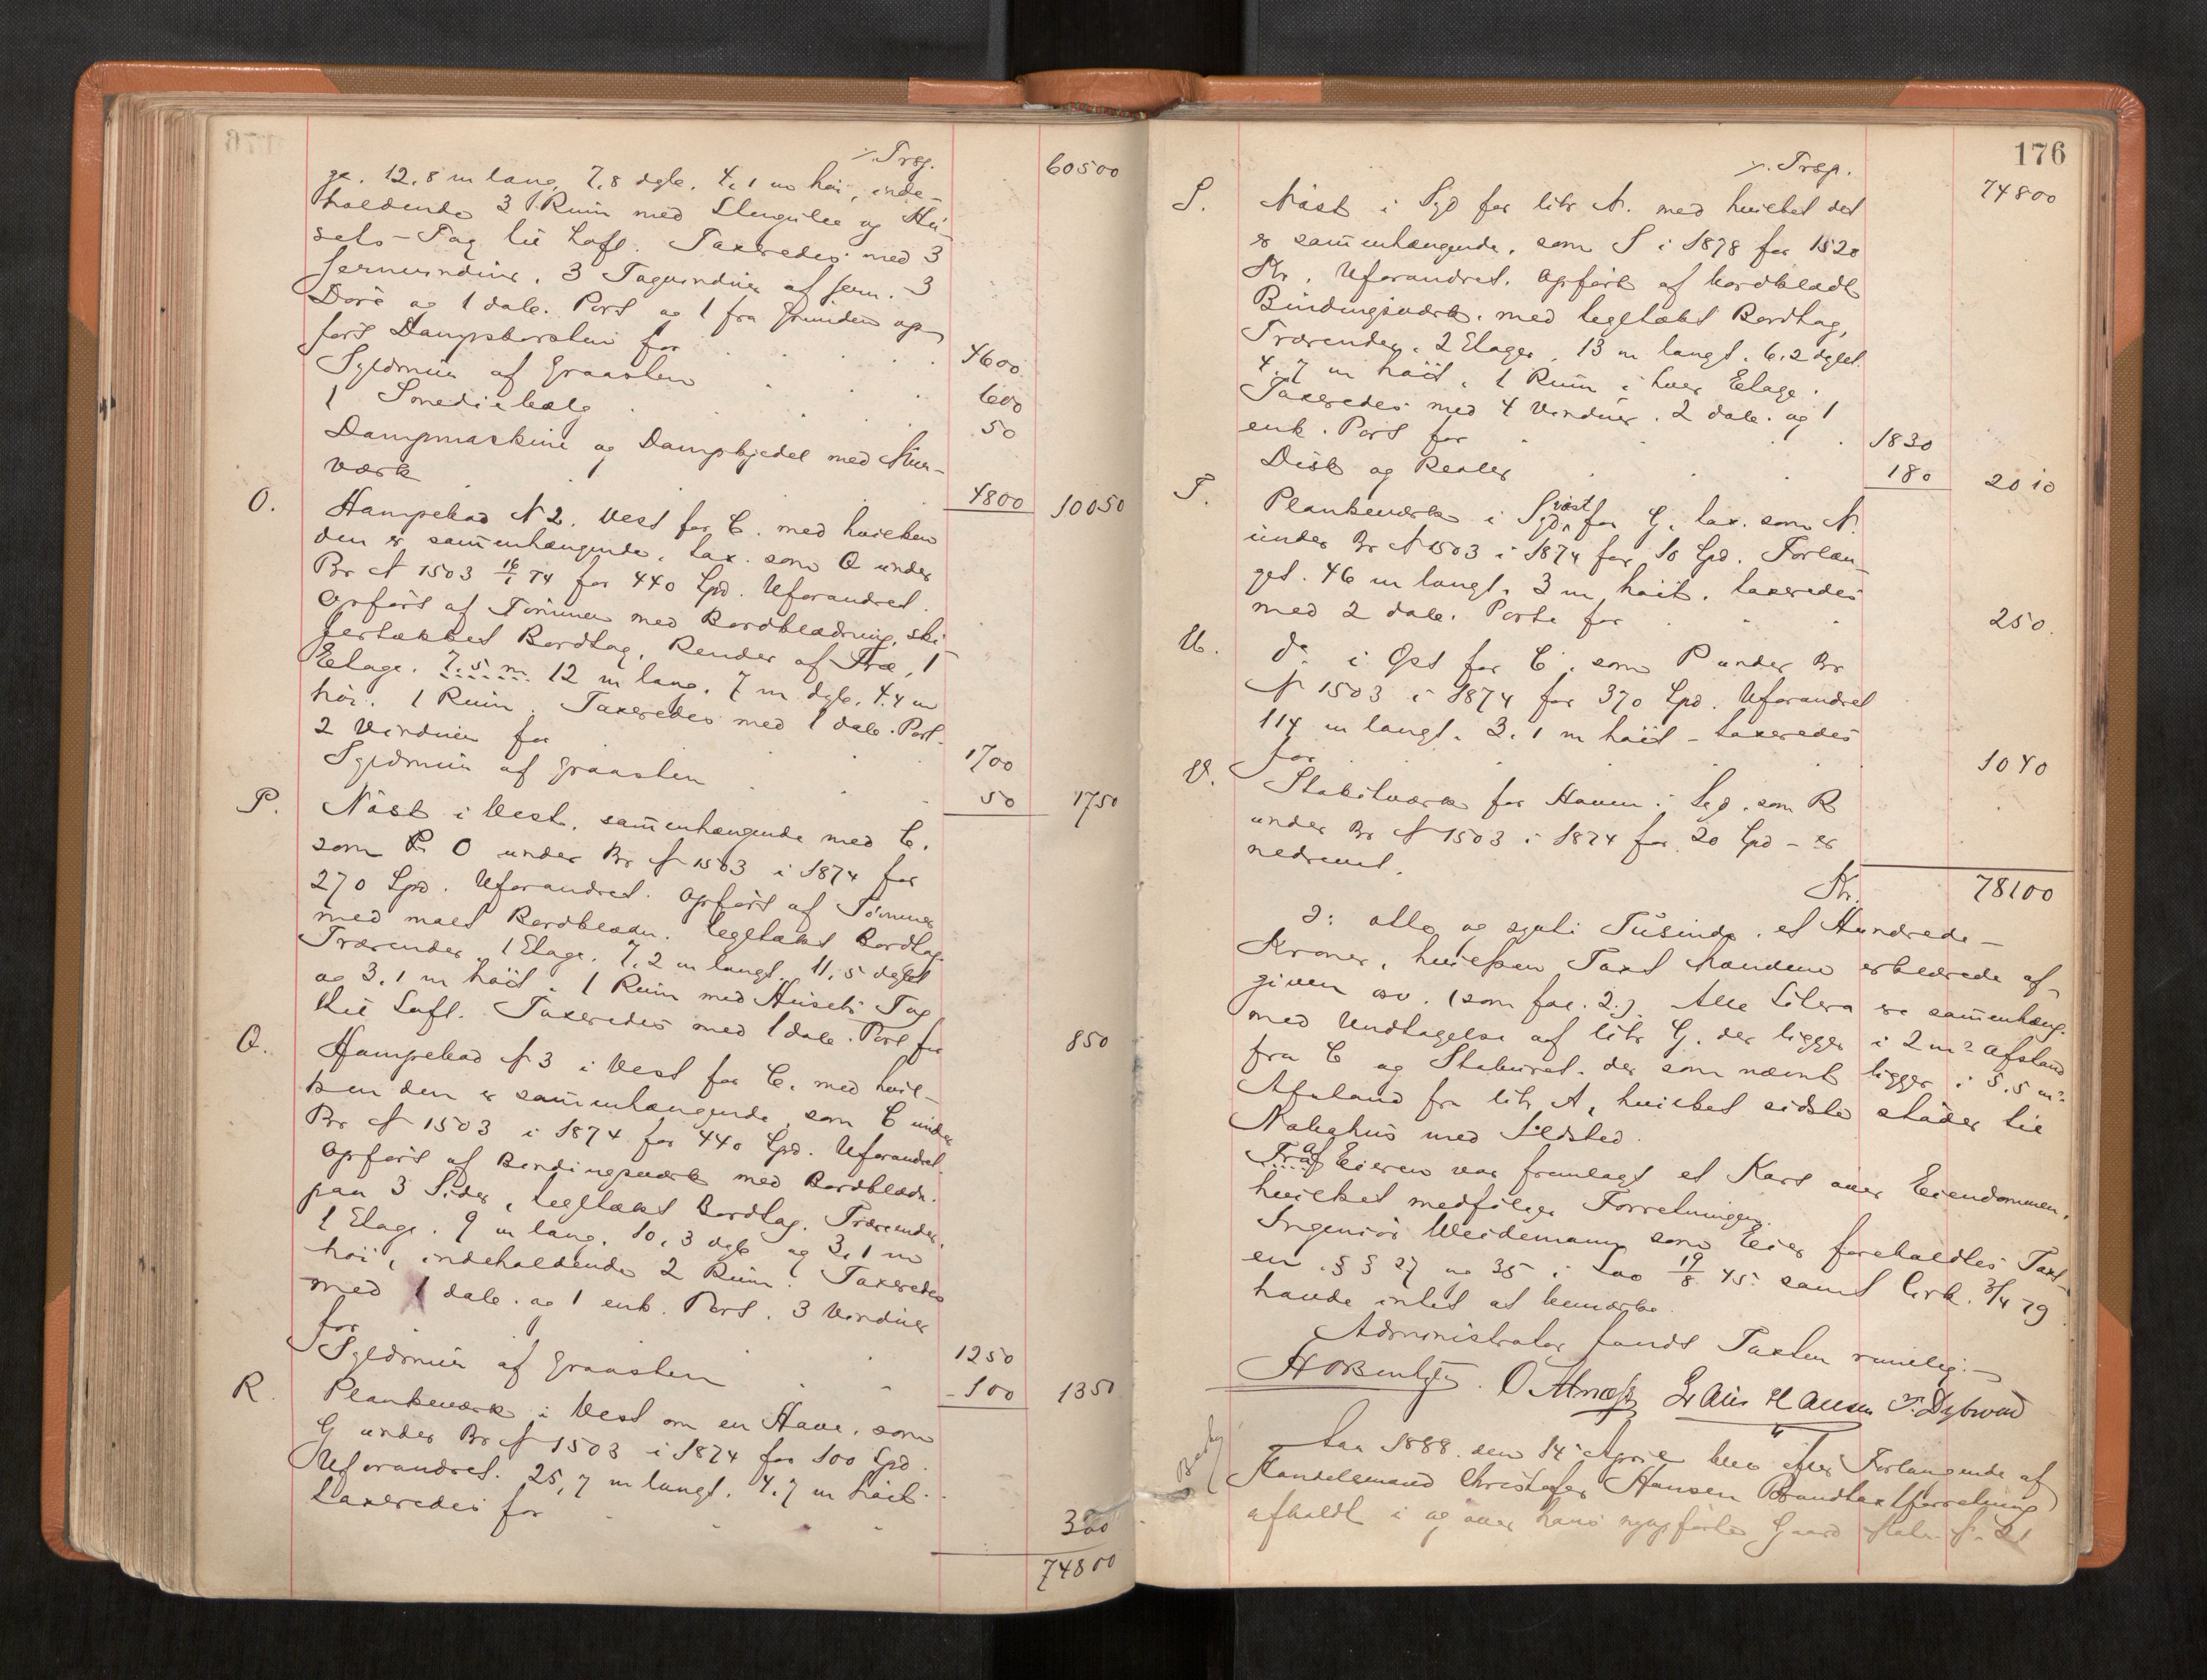 ÷. Trsp. 60500
ge. 12,8 m lang, 7,8 dyb. 4,1 m høi, inde-
holdende 3 Rum med og Hu-
sets-Tag til Loft. Taxeredes med 3
Jernvinduer, 3 Tagvinduer af Jern. 3
Döre og 1 dob. Port og 1 fra Grunden op-
ført Dampskorsten for 4600
Syldmur af Graasten 600
1 Smediebælg 50
Dampmaskine og Dampkjedel med Mur-
værk 4800 10050
O. Hampebod N 2. Vest for C. med hvilken
den er sammenhængende. tax. som Q under
Br N 1503 16/1 74 for 440 Spd. Uforandret.
Opført af Tömmer med Bordklædning, ski-
fertækket Bordtag, Render af Træ, 1
Etage. 7.5 m. 12 m lang. 7 m dyb. 4.4 m
høi. 1 Rum. Taxeredes med 1 dob. Port.
2 Vinduer for 1700
Syldmur af Graasten 50 1750
P. Nöst i Vest. sammenhængende med C.
som O under Br N 1503 i 1874 for
270 Spd. Uforandret. Opført af Tömmer
med malt Bordklædn. teglt­ækt Bordtag.
Trærender. 1 Etage. 7,2 m langt. 11,5 dybt
og 3,1 m höit. 1 Rum med Husets Tag
til Loft. Taxeredes med 1 dob. Port for 850
Q. Hampebod N 3 i Vest for C. med hvil-
ken den er sammenhængende, som C under
Br N 1503 i 1874 for 440 Spd. Uforandret.
Opført af Bindingsværk med Bordklædn.
paa 3 Sider, tegltækt Bordtag. Trærender.
1 Etage. 9 m lang. 10,3 dyb og 3,1 m
høi, indeholdende 2 Rum. Taxeredes
med 1 dob. og 1 enk. Port. 3 Vinduer
for 1250
Syldmur af Graasten 100 1350
R. Plankeværk i Vest om en Have. som
G under Br N 1503 i 1874 for 100 Spd.
Uforandret. 25,7 m langt. 4.7 m höit.
taxeredes for 300
74800
176
÷. Trsp. 74800
S. Nöst i Syd for litr N. med hvilket det
er sammenhængende. som S i 1878 for 1520
Kr. Uforandret. Opført af bordklædt
Bindingsværk. med tegltækt Bordtag,
Trærender. 2 Etager. 13 m langt. 6,2 dybt.
4.7 m höit. 1 Rum i hver Etage.
Taxeredes med 4 Vinduer. 2 dob. og 1
enk. Port for 1830
Disk og Reoler 180 2010
T. Plankeværk i Sydvest for G. tax. som N.
under Br N 1503 i 1874 for 10 Spd. Forlæn-
get. 46 m langt. 3 m höit. taxeredes
med 2 dob. Porte for 250.
U. do. i Øst for C. som P under Br
N 1503 i 1874 for 370 Spd. Uforandret
114 m langt. 3.1 m höit - taxeredes
for 1040
V. Stakitværk for Haven i Syd. som R
under Br N 1503 i 1874 for 20 Spd - er
nedrevet.
Kr. 78100
ɔ: otte og sytti Tusinde, et Hundrede
Kroner, hvilken Taxt Mændene erklærede af-
given osv. (som fol. 2.). Alle Litera er sammenhæng.
med Undtagelse af litr G. der ligger i 2 m? Afstand
fra C og Stakuret. der som nævnt ligger i 5.5 m?
Afstand fra litr A, hvilket sidste støder til
Nabohus med Ildsted.
Fra af Eieren var fremlagt et Kart over Eiendommen,
hvilket medfølger Forretningen.
Ingeniør Weidemann som Eier foreholdtes Taxt-
en. § § 27 og 35 i Lov 19/8 45 samt Cirk. 3/4 79
havde intet at bemærke.
Administrator fandt Taxten rimelig.
Laur Hansen Dybwad
Aar 1888. den 14 April blev efter Forlangende af
Handelsmand Christofer Hansen Brandtaxtforretning
afholdt i og over hans nyopførte Gaard Matr. N. 21